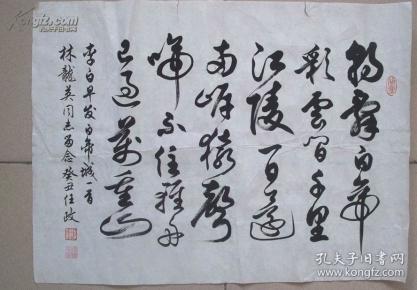 朝辞白帝
彩云间千里
江陵一日还
两岸猿声
啼不住轻舟
已过万重山
李白早发白帝城一首
林龙英同志留念 癸丑任政
孔夫子旧书网